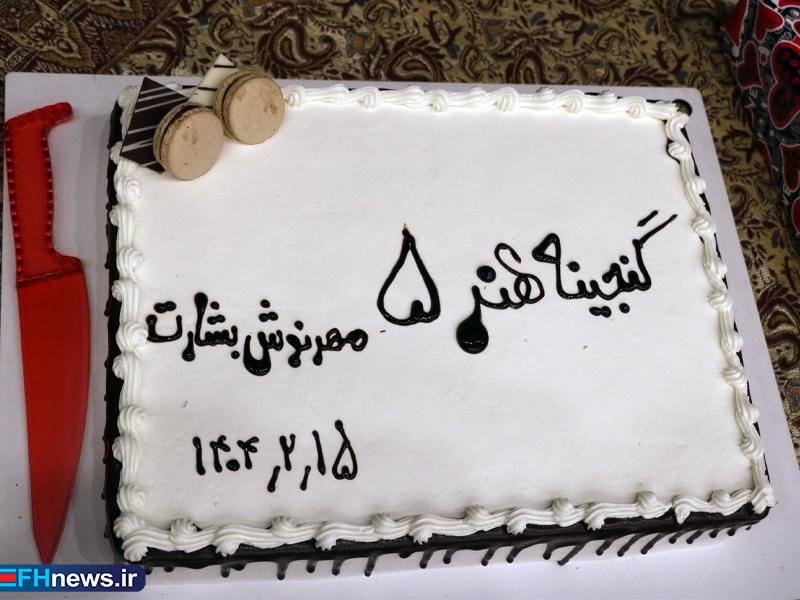 گنجینه هنر ۵
مهرنوش بشارت
۱۴۰۴٫۲٫۱۵
EFHnews.ir